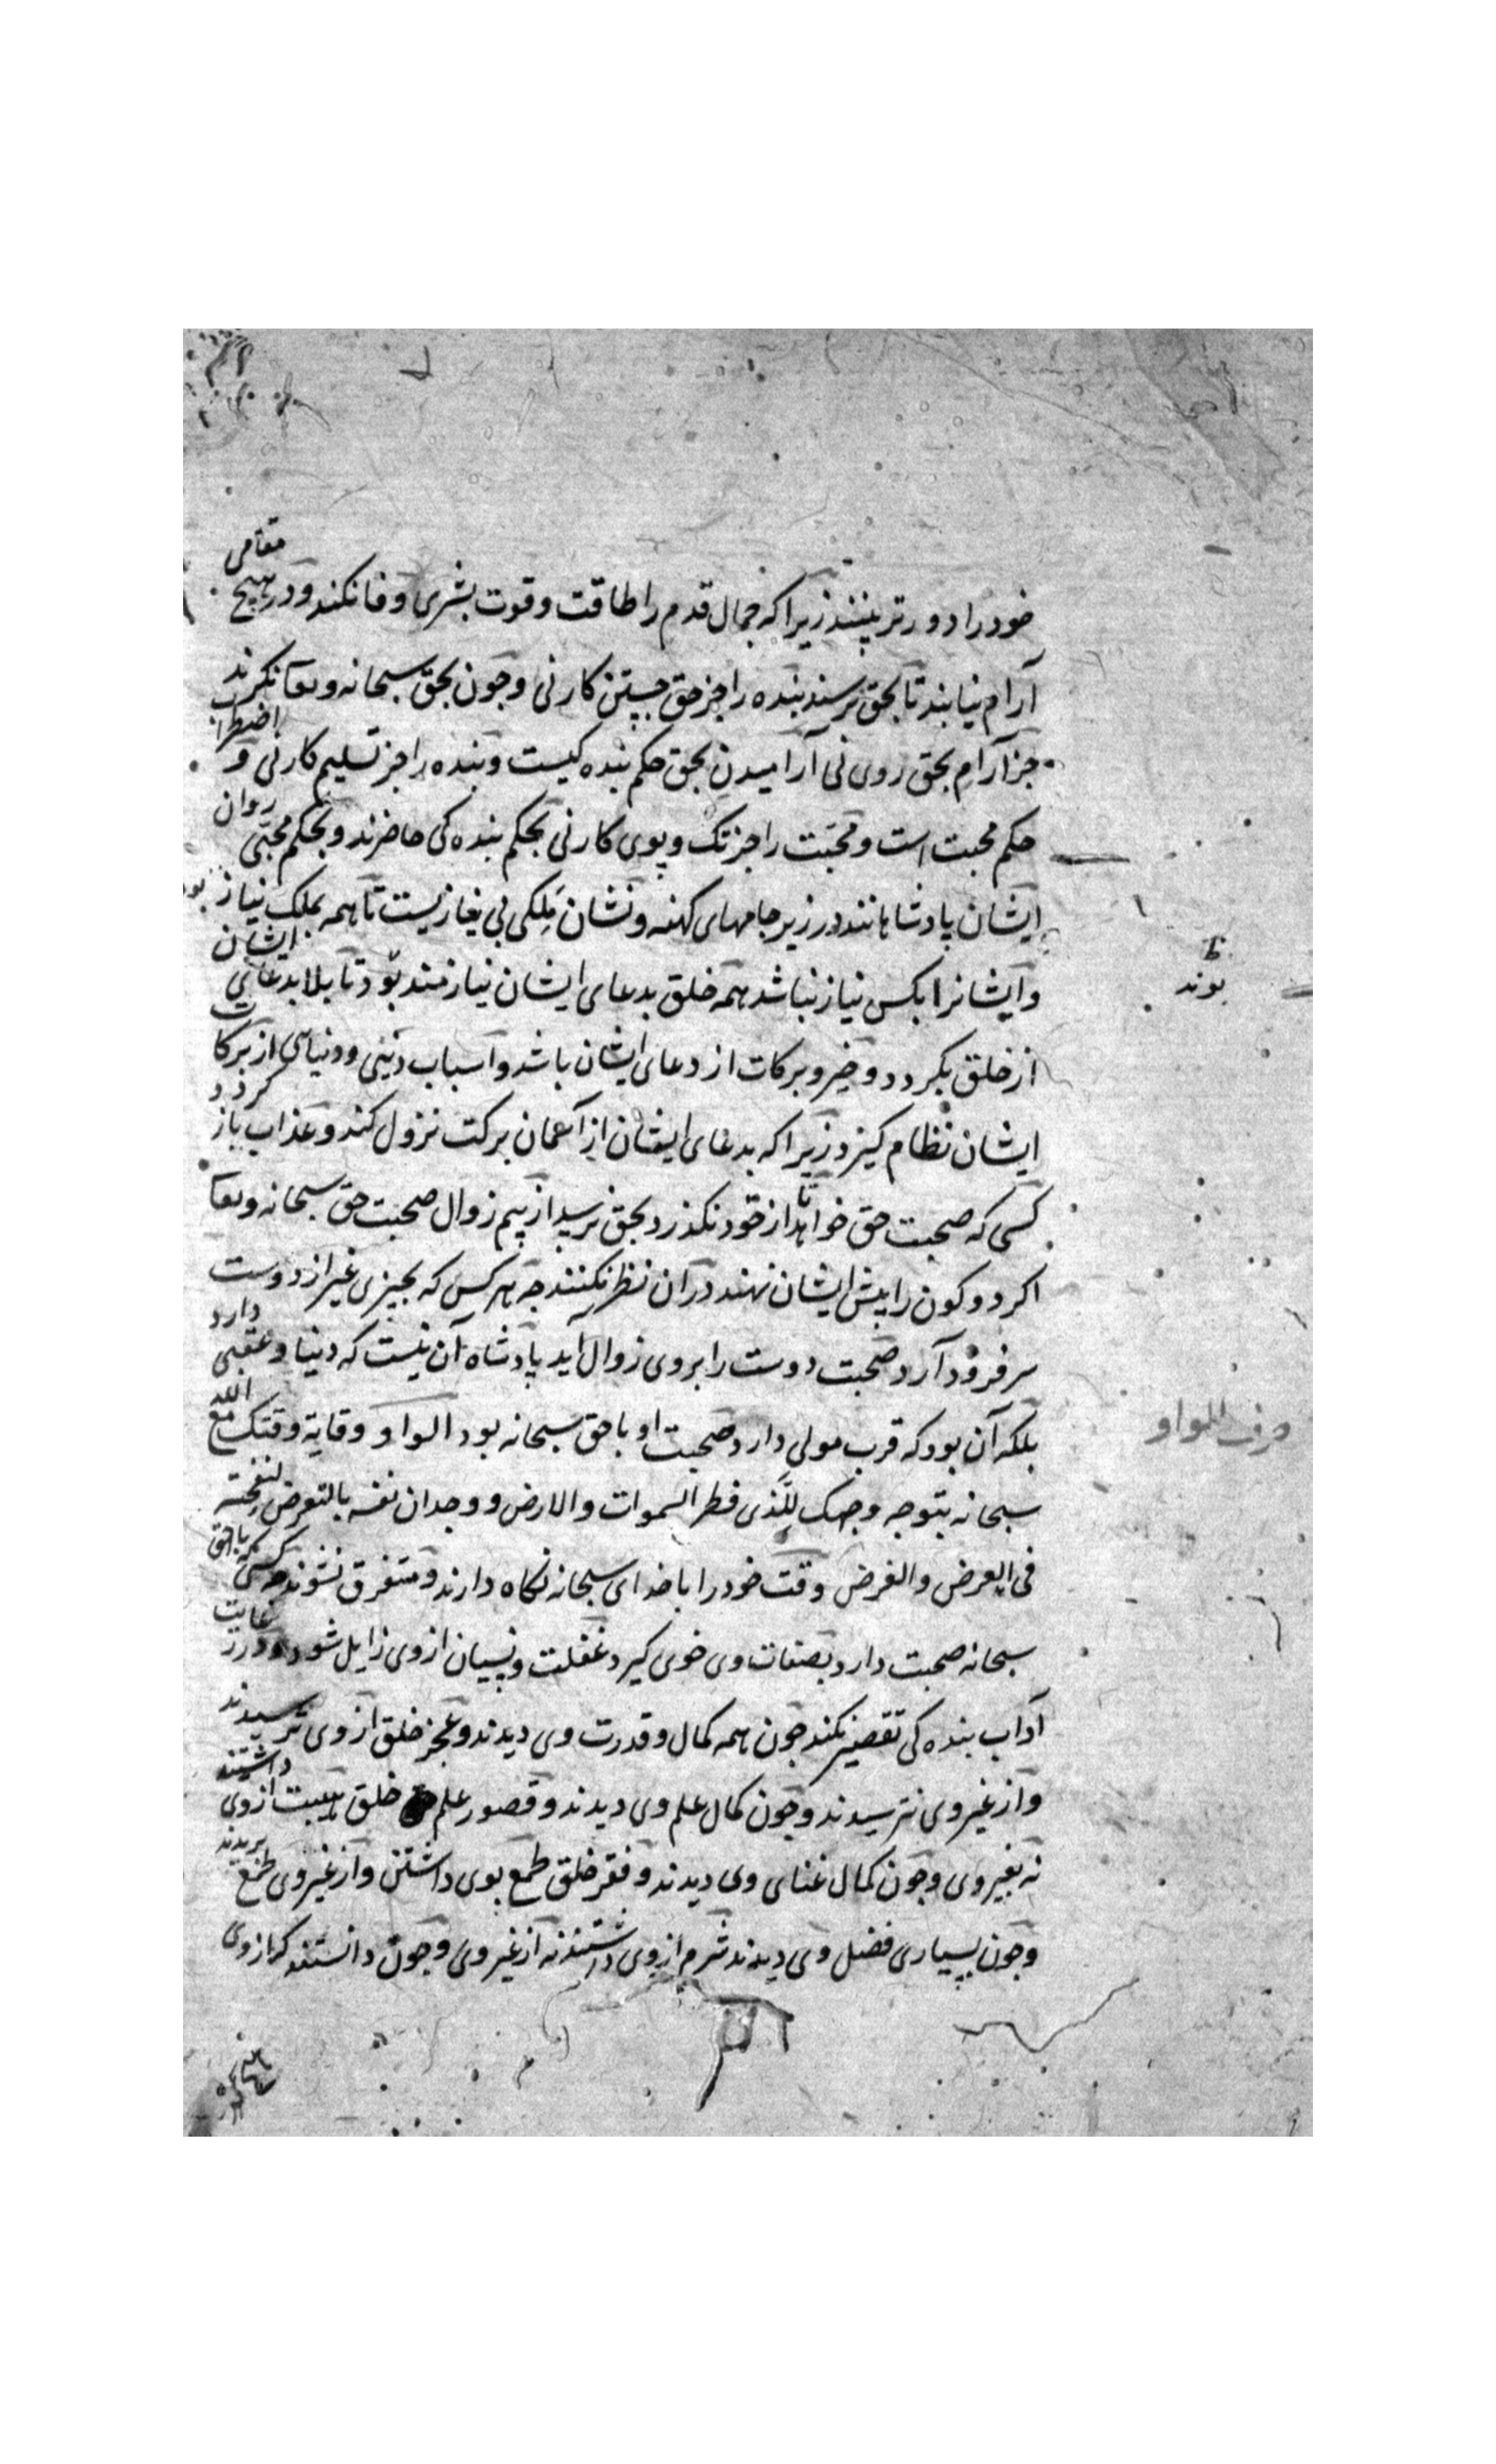 خود را دورتر بینند زیرا که جمال قدم را طاقت و قوت بشری وفا نکند و در هیچ مقامی
آرام نیابند تا بحق نرسند بنده را جز حق جستن کار نی و چون بحق سبحانه و تعا نکرند
جز آرام بحق روی نی آرامیدن بحق حکم بنده کیست و بنده را جز تسلیم کار نی و اضطراب
حکم محبت است و محبت را جز تک و پوی کار نی بحکم بنده کی حاضرند و بحکم محبی روان
ایشان پادشاهانند در زیر جامهای کهنه و نشان ملکی بی نیازیست تا همه بملک نیاز بود
و ایشانرا بکس نیاز نباشد همه خلق بدعای ایشان نیازمند بود تا بلا بدعای ایشان
از خلق بکردد و خیر و برکات از دعای ایشان باشد و اسباب دینی و دنیای از برکات
ایشان نظام کیرد زیرا که بدعای ایشان از آسمان برکت نزول کند و عذاب باز کردد
کسی که صحبت حق خواهد تا از خود نکذرد بحق نرسد از بیم زوال صحبت حق سبحانه و تعا
اکر دو کون را پیش ایشان نهند در آن نظر نکنند چه هر کس که بچیزی غیر از دوست
سر فرود آرد صحبت دوست را بروی زوال آید پادشاه آن نیست که دنیا و عقبی دارد
بلکه آن بود که قرب مولی دارد صحبت او با حق سبحانه بود الواو وقایة وقتک مع الله
سبحانه بتوجه وجهک للذی فطر السموات والارض و وجدان نفسه بالتعرض لنفحته
فی العرض والغرض وقت خود را با خدای سبحانه نکاه دارند و متفرق نشوند چه کسی که با حق
سبحانه صحبت دارد بصفات وی خوی کیرد غفلت و نسیان از وی زایل شود و در رعایت
آداب بنده کی تقصیر نکند چون همه کمال و قدرت وی دیدند و عجز خلق از وی ترسیدند
و از غیر وی نترسیدند و چون کمال علم وی دیدند و قصور علم خلق هیبت از وی داشتند
نه بغیر وی و چون کمال غنای وی دیدند و فقر خلق طمع بوی داشتن و از غیر وی طمع بریدند
و چون بسیاری فضل وی دیدند شرم از وی داشتند نه از غیر وی و چون دانستند که از وی
ظ
بوند
حرف الواو